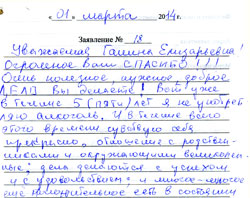 « 01 » марта 2014г.
Заявление № 18
Уважаемая Галина Елизарьевна!
Огромное Вам СПАСИБО!!!
Очень полезное, нужное, доброе
ДЕЛО Вы делаете! Вот уже
в течение 5 (пяти) лет я не употреб
ляю алкоголь. И в течение всего
этого времени чувствую себя
прекрасно, отношение с родствен-
никами и окружающими великолеп-
ные; дела делаются с успехом
и с удовольствием и много-многое
ещё положительное есть в состоянии